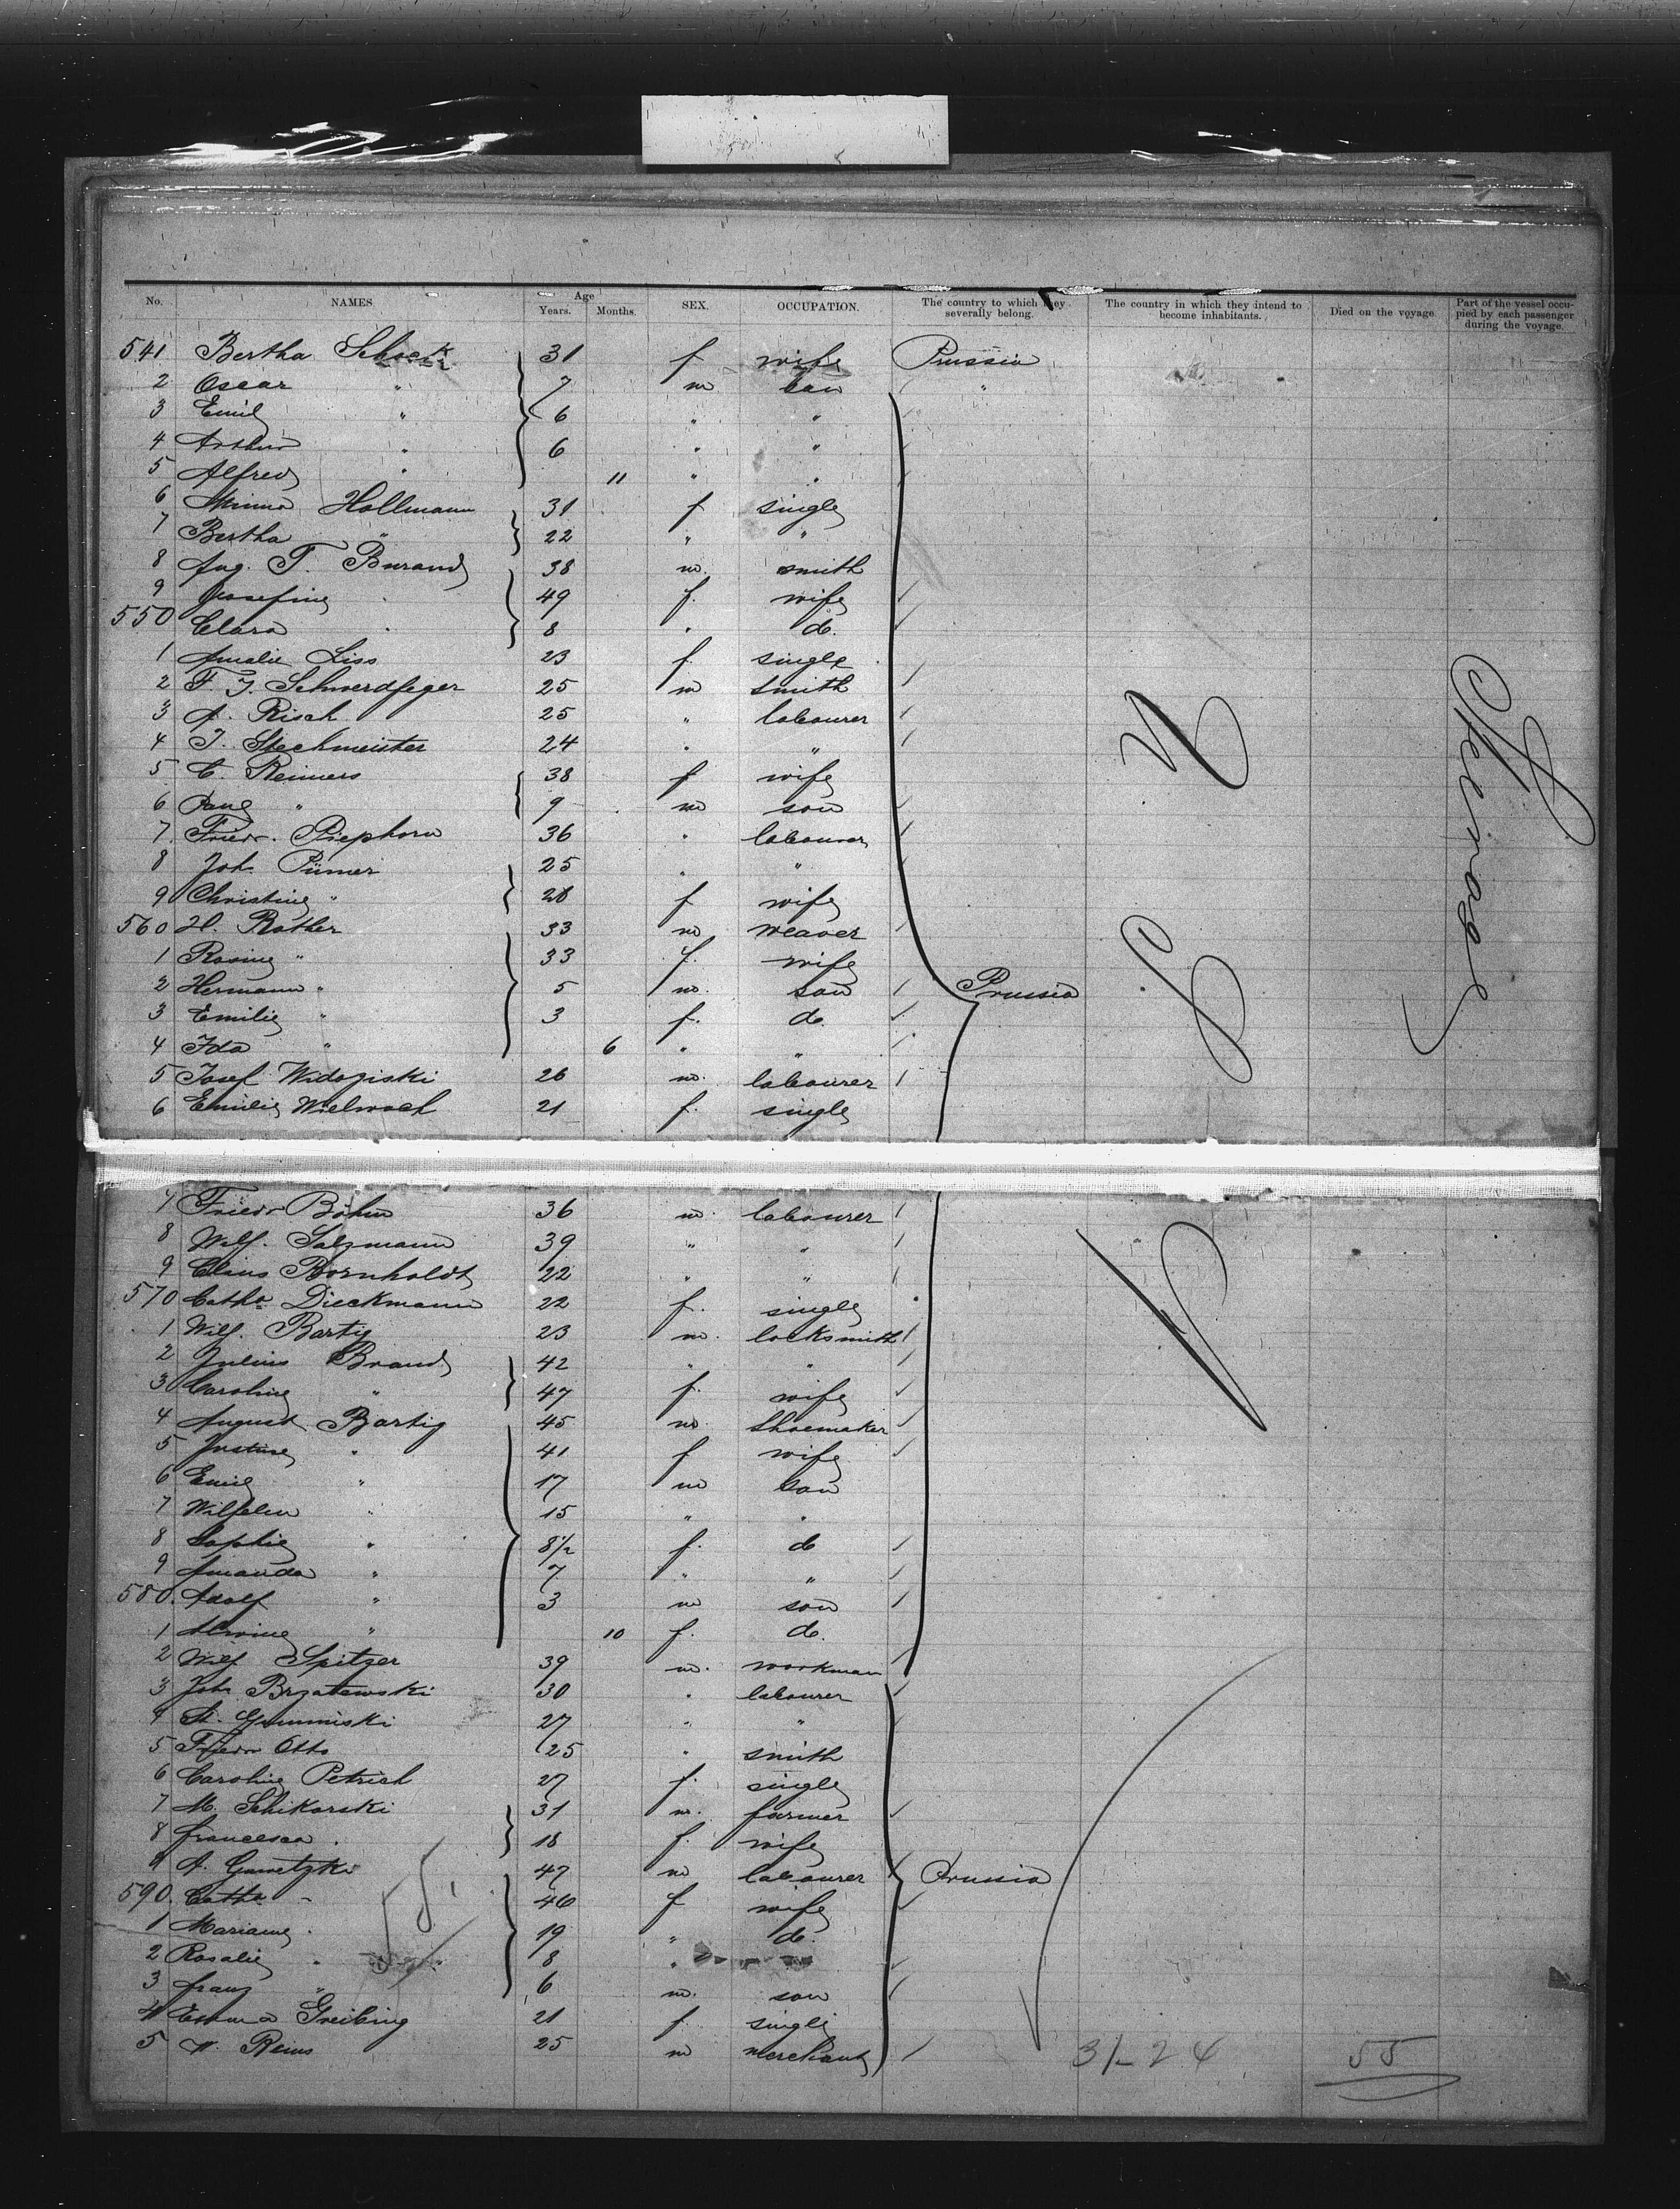 No. NAMES. Age Years. Months. SEX. OCCUPATION. The country to which they severally belong. The country in which they intend to become inhabitants. Died on the voyage. Part of the vessel occupied by each passenger during the voyage.
541 Bertha Schack 31 f wife Prussia
2 Oscar " 7 m son "
3 Emil " 6 " "
4 Arthur " 6 " "
5 Alfred " 11 " "
6 Minna Hollmann 31 f single
7 Bertha " 22 " "
8 Aug. F. Burand 38 m. smith
9 Josefine 49 f. wife
550 Clara 8 " d.
1 Amalie Liss 23 f single
2 F. J. Schwerdfeger 25 m smith
3 A. Risch 25 " labourer
4 J. Stechmeister 24 " "
5 C. Reimers 38 f wife
6 Paul " 9 m son
7 Friedr. Piephorn 36 " labourer
8 Joh. Pümer 25 " "
9 Christine " 28 f wife
560 H. Rother 33 m weaver
1 Rosine " 33 f. wife
2 Hermann " 5 m. son Prussia
3 Emilie " 3 f. d.
4 Ida " 6 " "
5 Josef Widoziski 26 m. labourer
6 Emilie 21 f. single
7 Friedr Böhm 36 m. labourer
8 Wilh. Salzmann 39 " "
9 Claus Bornholdt 22 " "
570 Catha Dieckmann 22 f. single
1 Wilh. Bartig 23 m. locksmith
2 Julius Brand 42 " "
3 Caroline " 47 f. wife
4 August Bartig 45 m. shoemaker
5 Justine " 41 f wife
6 Emil " 17 m son
7 Wilhelm " 15 " "
8 Sophie " 8½ f. d
9 Amanda " 7 " "
580 Adolf " 3 m son
1 Alwine " 10 f. d.
2 Wilh Spitzer 39 m. workman
3 Joh Brzatewski 30 " labourer
4 St. 27 " "
5 Friedr Otto 25 " smith
6 Caroline Petrich 27 f. single
7 M. Schikorski 31 m. farmer
8 Francesca 18 f. wife
9 A. Gawetzki 47 m labourer Prussia
590 Catha " 46 f wife
1 Mariane 19 " d.
2 Rosalie " 8 "
3 Franz " 6 m. son
4 Emma Greibing 21 f single
5 W. Reins 25 m merchant
U S A
Steerage
31 - 24 55